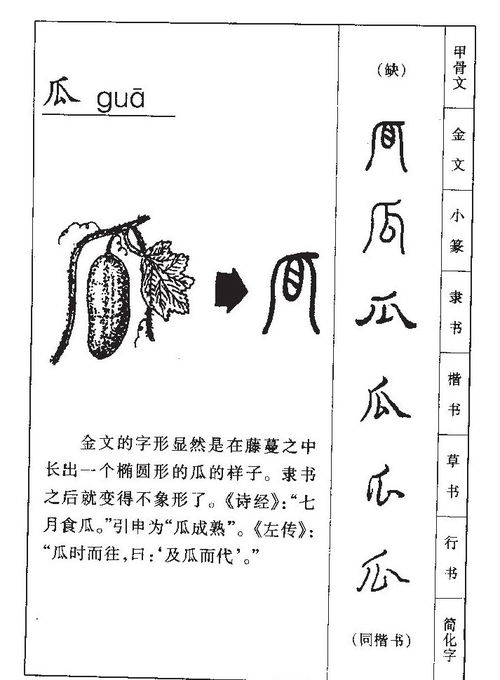 瓜 guā
金文的字形显然是在藤蔓之中
长出一个椭圆形的瓜的样子。隶书
之后就变得不象形了。《诗经》：“七
月食瓜。”引申为“瓜成熟”。《左传》：
“瓜时而往，曰：‘及瓜而代’。”
（缺） 甲骨文
瓜 金文
瓜 小篆
瓜 隶书
瓜 楷书
瓜 草书
瓜 行书
（同楷书） 简化字